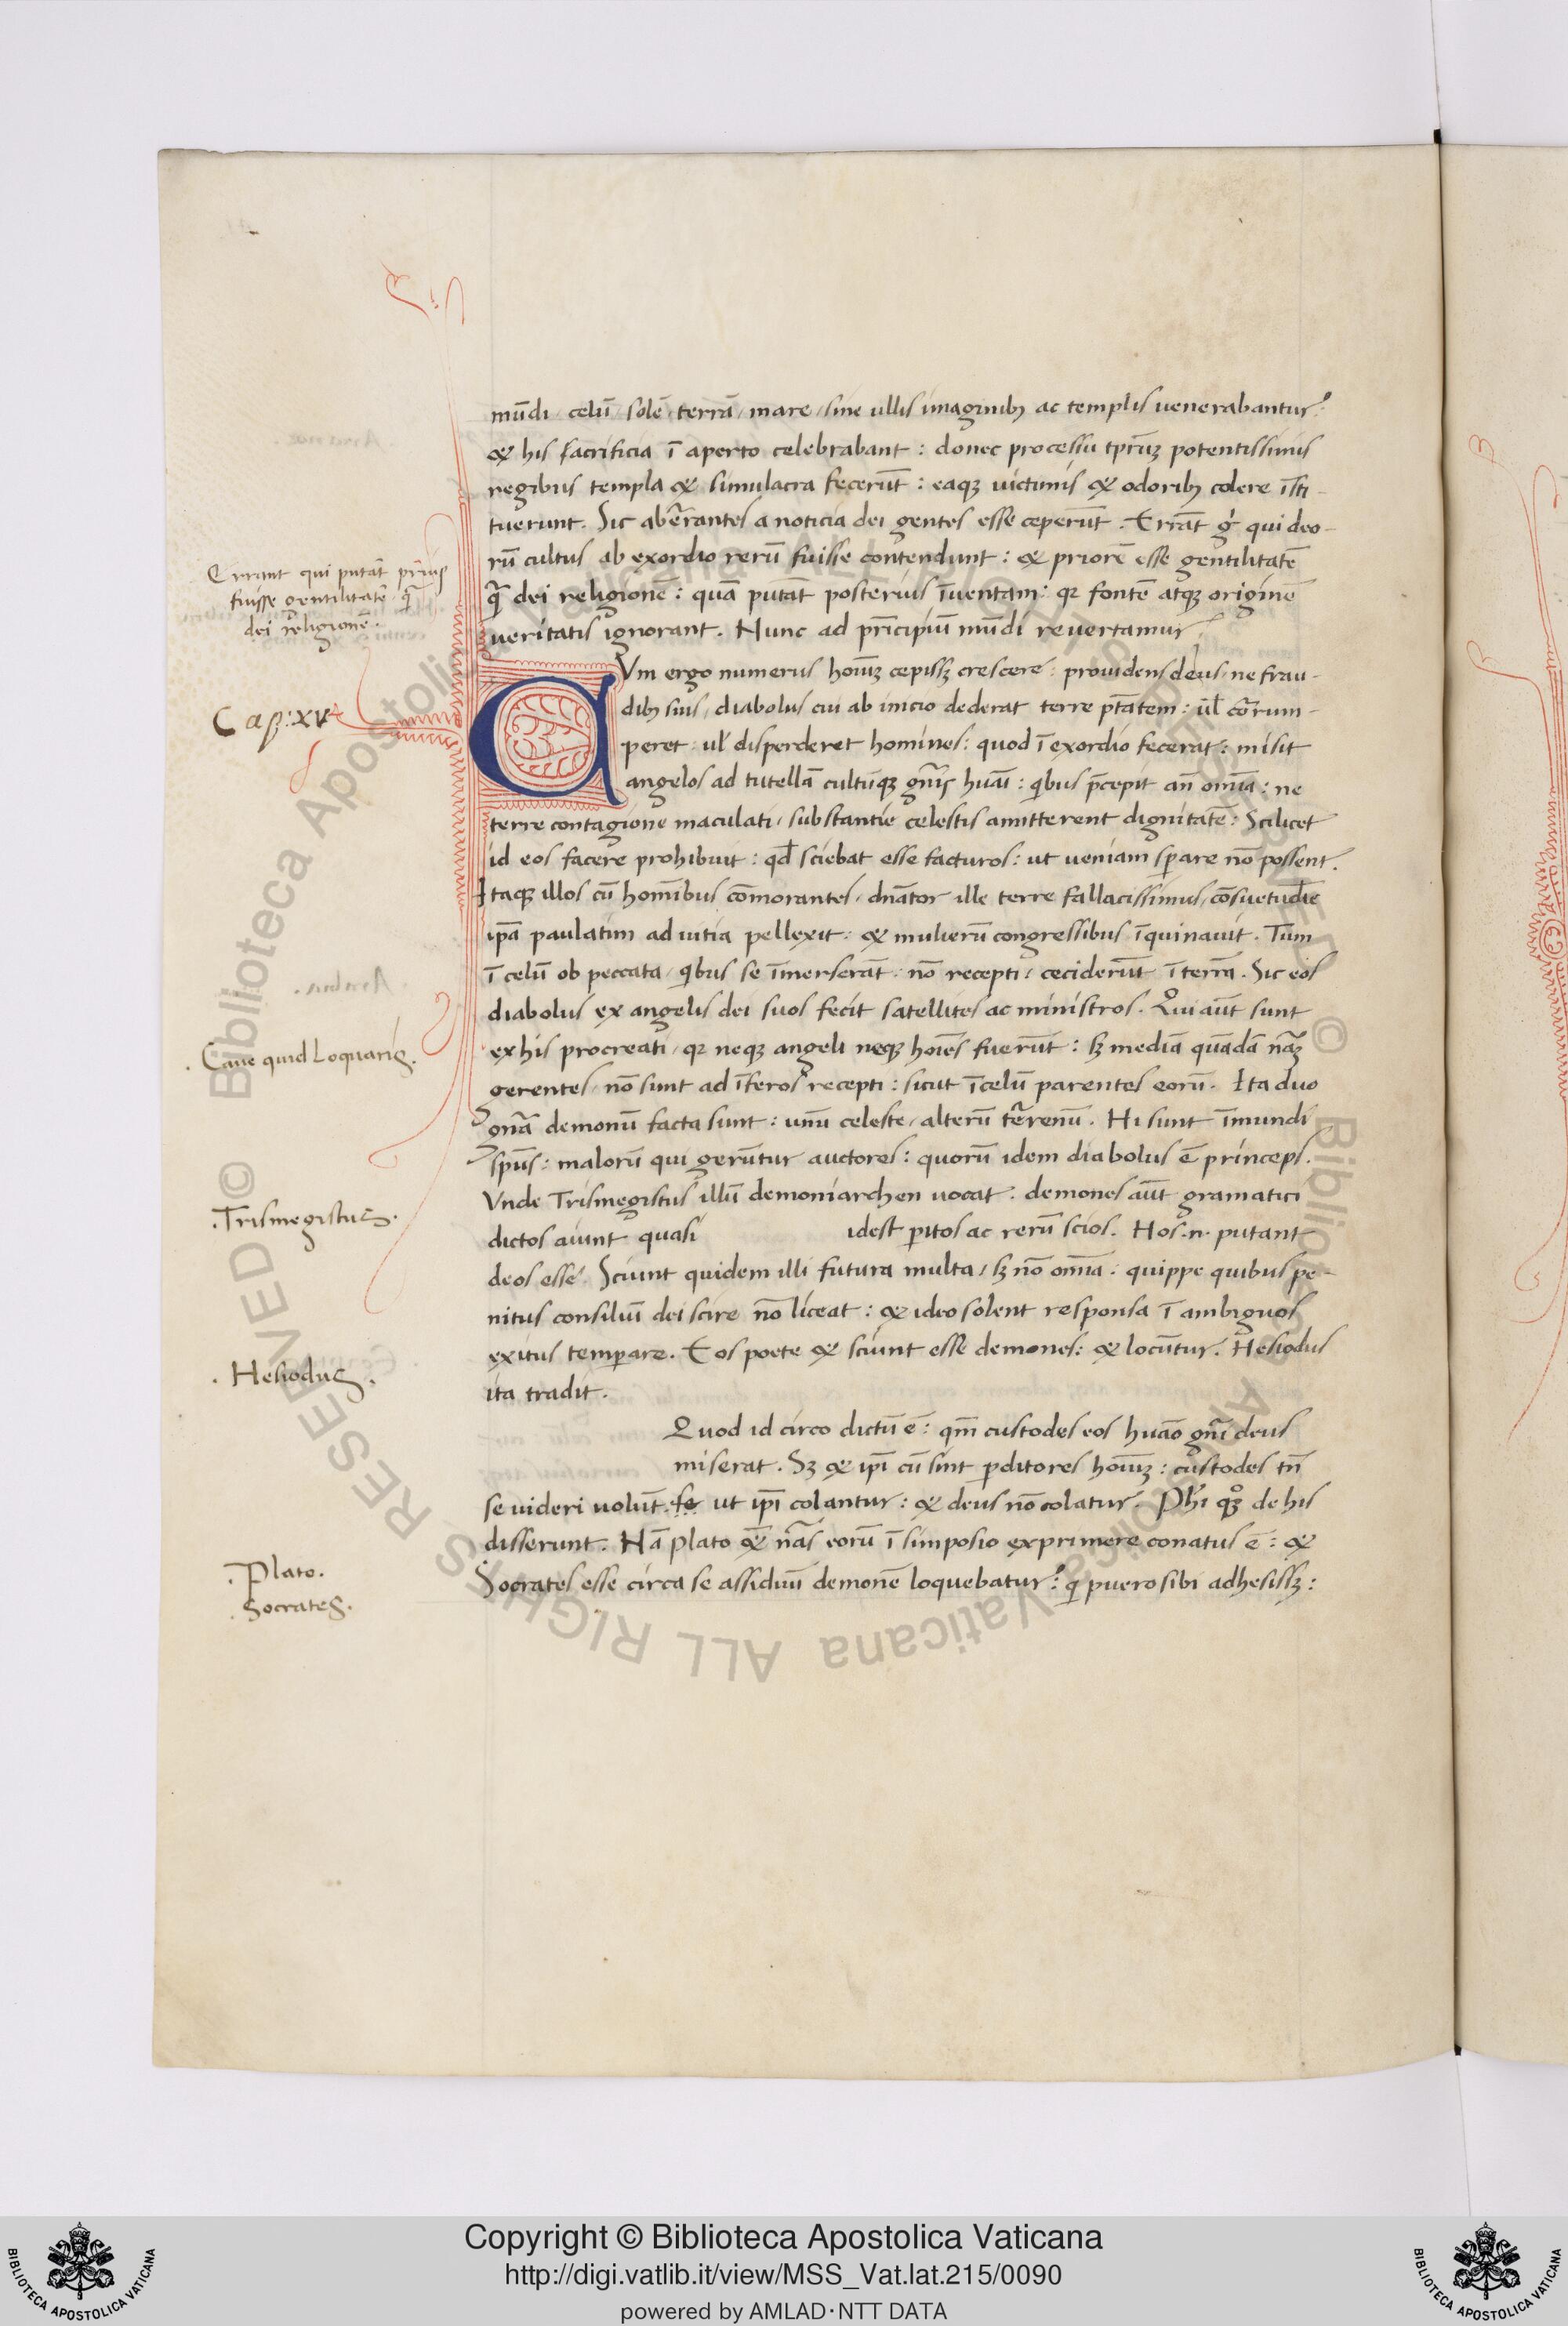 mūdi / celū / solē / terrā / mare / sine ullis imaginibꝫ ac templis uenerabantur:
& his sacrificia ī aperto celebrabant : donec processu tp̄ruꝫ potentissimis
regibus templa & simulacra fecerūt : eaqꝫ uictimis & odoribꝫ colere īsti-
tuerunt. Sic aberrantes a noticia dei gentes esse ceperūt. Errāt g̊ qui deo-
rū cultus ab exordio rerū fuisse contendunt : & priorē esse gentilitatē
q̄ dei religionē : quā putāt posterius īuentam : qꝛ fontē atqꝫ originē
ueritatis ignorant. Nunc ad pr̄icipiū mūdi reuertamur.
Errant qui putāt prius
fuisse gentilitatē q̄
dei religionē.
Cap: xv
CVm ergo numerus hoīuꝫ cepissꝫ crescere : prouidens deus / ne frau-
dibꝫ suis / diabolus cui ab inicio dederat terre pt̄atem : ul̄ corrum-
peret : ul̄ disperderet homines : quod ī exordio fecerat : misit
angelos ad tutellā cultūqꝫ gn̄is huāi : qibus p̄cepit an̄ om̄ia : ne
terre contagione maculati / substantie celestis amitterent dignitatē : Scilicet
id eos facere prohibuit : qd̄ sciebat esse facturos : ut ueniam sperare nō possent.
Itaqꝫ illos cū homībus cōmorantes / dn̄ator ille terre fallacissimus / cōsuetudīe
ip̄a paulatim ad uitia pellexit : & mulierū congressibus īquinauit. Tum
ī celū ob peccata / qibus se īmerserāt : nō recepti : ceciderūt ī terrā. Sic eos
diabolus ex angelis dei suos fecit satellites ac ministros. Qui aūt sunt
ex his procreati / qꝛ neqꝫ angeli neqꝫ hoīes fuerūt : sꝫ mediā quādā nāꝫ
gerentes / nō sunt ad īferos recepti : sicut ī celū parentes eorū. Ita duo
gn̄a demonū facta sunt : unū celeste / alterū terrenū. Hi sunt īmundi
sp̄us : malorū qui gerūtur auctores : quorū idem diabolus ē princeps.
Vnde Trismegistus illū demoniarchen uocat. demones aūt gramatici
dictos aiunt quasi idest peritos ac rerū scios. Hos .n. putant
deos esse. Sciunt quidem illi futura multa / sꝫ nō om̄ia : quippe quibus pe-
nitus consiliū dei scire nō liceat : & ideo solent responsa ī ambiguos
exitus temperare. Eos poete & sciunt esse demones : & locūtur. Hesiodus
ita tradit.
Caue quid Loquaris.
.Trismegistus.
. Hesiodus.
Quod id circo dictū ē : qm̄ custodes eos huāo gn̄i deus
miserat. Sꝫ & ip̄i cū sint perditores hoīuꝫ : custodes tn̄
se uideri uolūt. se ut ip̄i colantur : & deus nō colatur. Phī qꝫ de his
disserunt. Nā plato & nās eorū ī simposio exprimere conatus ē : &
Socrates esse circa se assiduū demonē loquebatur : qi puero sibi adhesissꝫ :
.Plato.
.Socrates.
© Biblioteca Apostolica Vaticana ALL RIGHTS RESERVED
BIBLIOTECA APOSTOLICA VATICANA
Copyright © Biblioteca Apostolica Vaticana
http://digi.vatlib.it/view/MSS_Vat.lat.215/0090
powered by AMLAD·NTT DATA
BIBLIOTECA APOSTOLICA VATICANA